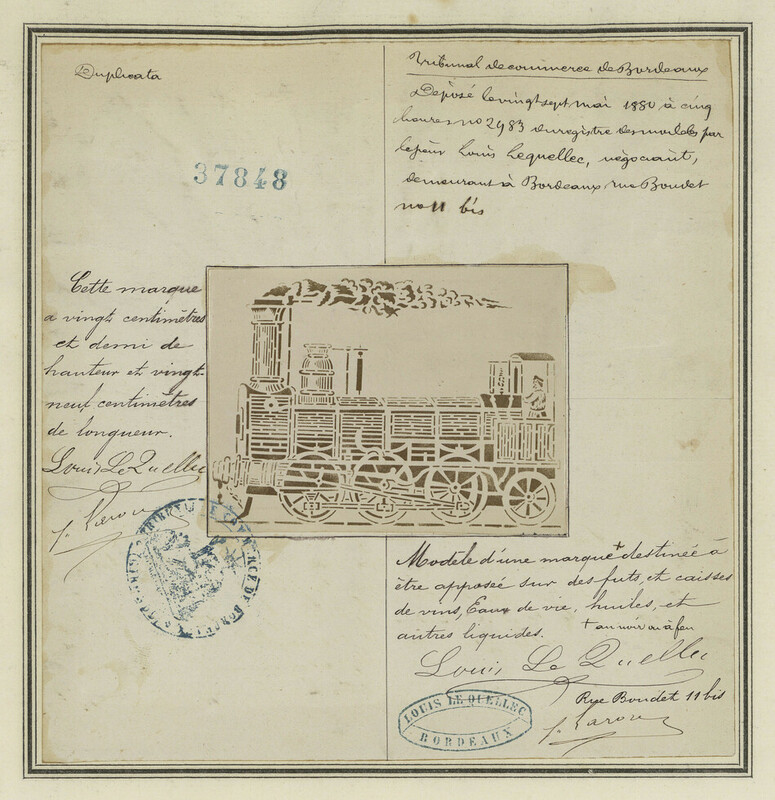 Duplicata
37848
Tribunal de commerce de Bordeaux
Déposé le vingt sept mai 1880 à cinq
heures no 2983 du registre des modeles par
le sieur Louis Lequellec, négociant,
demeurant à Bordeaux rue Boudet
no 11 bis
Cette marque
a vingt centimètres
et demi de
hauteur et vingt
neuf centimètres
de longueur.
Louis Le Quellec
TRIBUNAL DE COMMERCE DE BORDEAUX
Modele d'une marque + destinée à
être apposée sur des futs, et caisses
de vins, Eaux de vie, huiles, et
autres liquides. + au noir ou à feu
Louis Le Quellec
Rue Boudet 11 bis
LOUIS LE QUELLEC
BORDEAUX